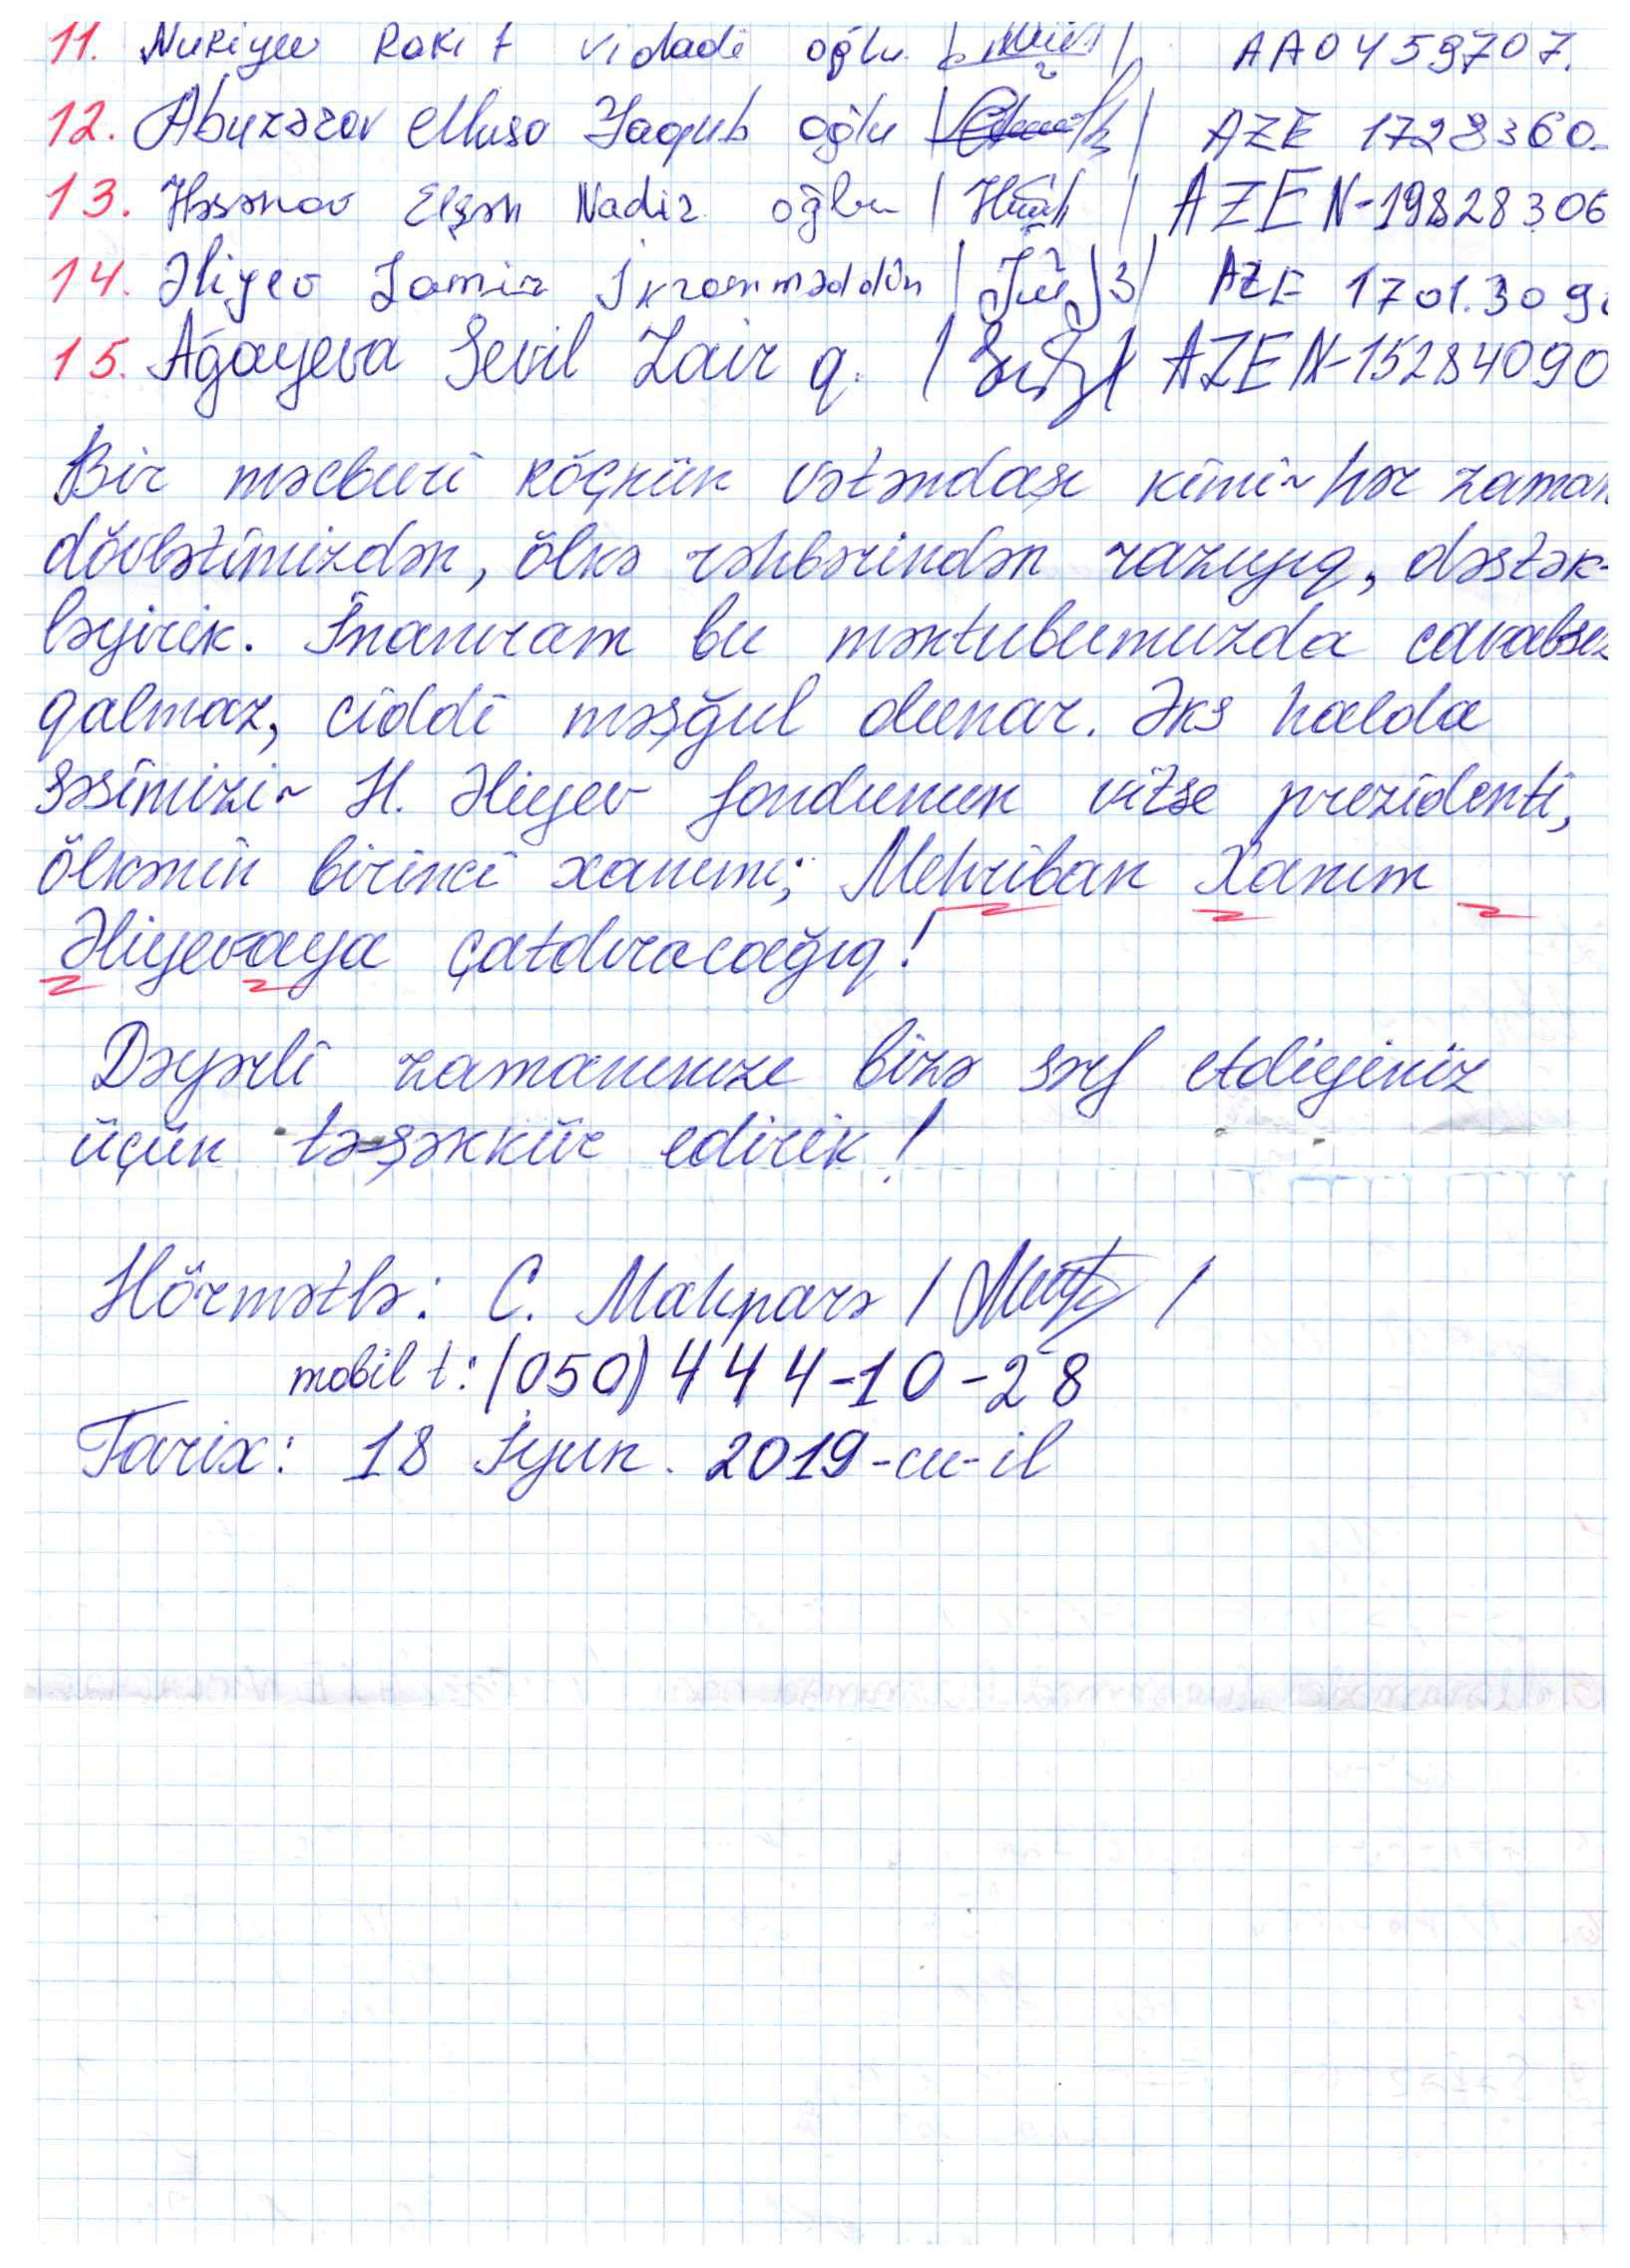 11. Nuriyev Rakif Vidadi oğlu | | AA0459707.
12. Abuzərov Musa Yaqub oğlu | | AZE 1728360
13. Həsənov Elşən Nadir oğlu | | AZE N-19828306
14. Əliyev Samir İkramməddin | | AZE 1701309
15. Ağayeva Sevil Zair q. | | AZE N-15284090
Bir məcburi köçkün vətəndaşı kimi~ hər zaman
dövlətimizdən, ölkə rəhbərindən razıyıq, dəstək-
ləyirik. İnanıram bu məktubumuzda cavabsız
qalmaz, ciddi məşğul olunar. Əks halda
səsimizi~ H. Əliyev fondunun vitse prezidenti,
ölkənin birinci xanımı; Mehriban Xanım
Əliyevaya çatdıracağıq!
Dəyərli zamanınızı bizə sərf etdiyiniz
üçün təşəkkür edirik!
Hörmətlə: C. Mahparə | |
mobil t: (050) 444-10-28
Tarix: 18 İyun. 2019-cu-il